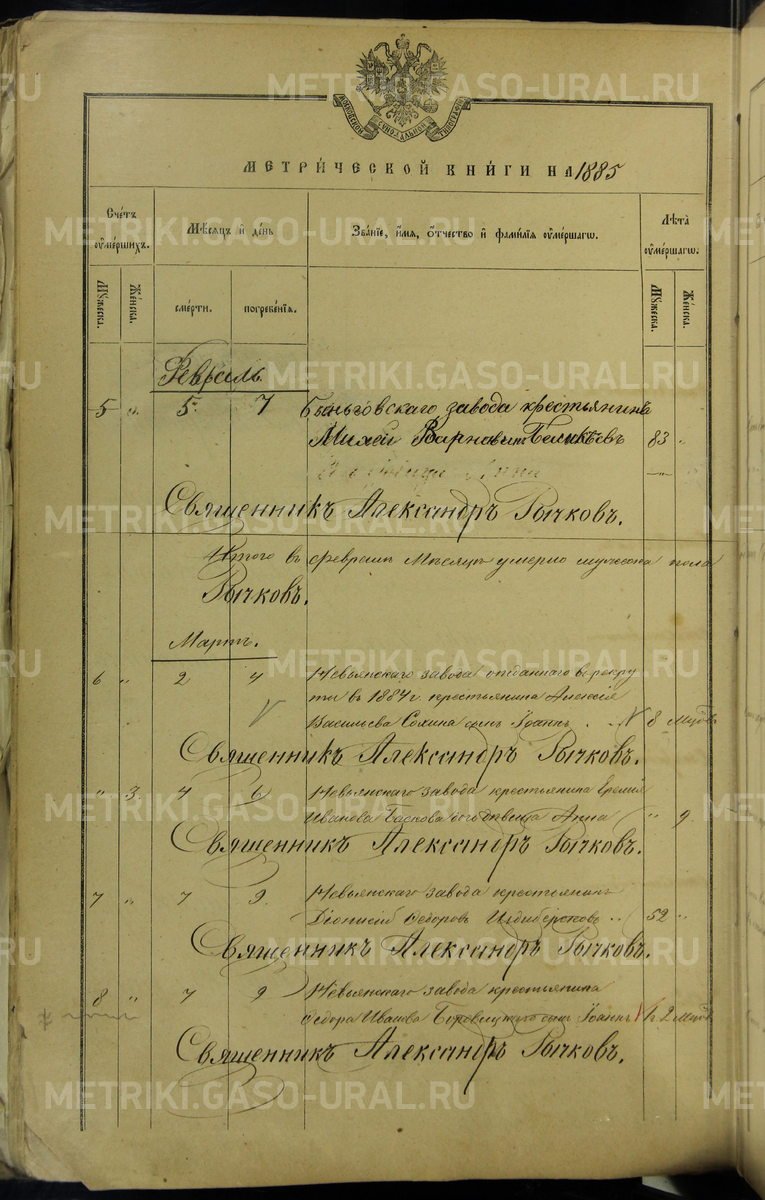 МОСКОВСКОЙ СѴНОДАЛЬНОЙ ТИПОГРАФІИ
МЕТРИ́ЧЕСКОЙ КНИ́ГИ НА 1885
Сче́тъ ᲂумершихъ.
Мѣ́сяцъ и де́нь
Зва́ніе, и́мя, ѻ҆́тчество и фами́лія ᲂумершагѡ.
Лѣта̀ ᲂумершагѡ.
Мꙋжеска.
Же́нска.
сме́рти.
погребе́нія.
Мꙋжеска.
Же́нска.
Февраль.
5 " 5 7 Быньговскаго завода крестьянинъ
Михей Варнавит 83 "
Священникъ Александръ Рычковъ.
Итого въ феврале месяце умерло мужеска пола
Рычковъ.
Мартъ.
6 " 2 4 Невьянскаго завода отданнаго в рекру
ты в 1884 г. крестьянина Алексія
Васильева Сохина сынъ Іоаннъ 8 Мцовъ
Священникъ Александръ Рычковъ.
" 3. 4 6 Невьянскаго завода крестьянина Еремія
Иванова девица Анна " 9.
Священникъ Александръ Рычковъ.
7 " 7 9. Невьянскаго завода крестьянинъ
Діонисій Ѳедоровъ 52 "
Священникъ Александръ Рычковъ.
8 " 7 9 Невьянскаго завода крестьянина
Ѳедора Иванова сынъ Іоаннъ 2 Мцовъ
Священникъ Александръ Рычковъ.
METRIKI.GASO-URAL.RU